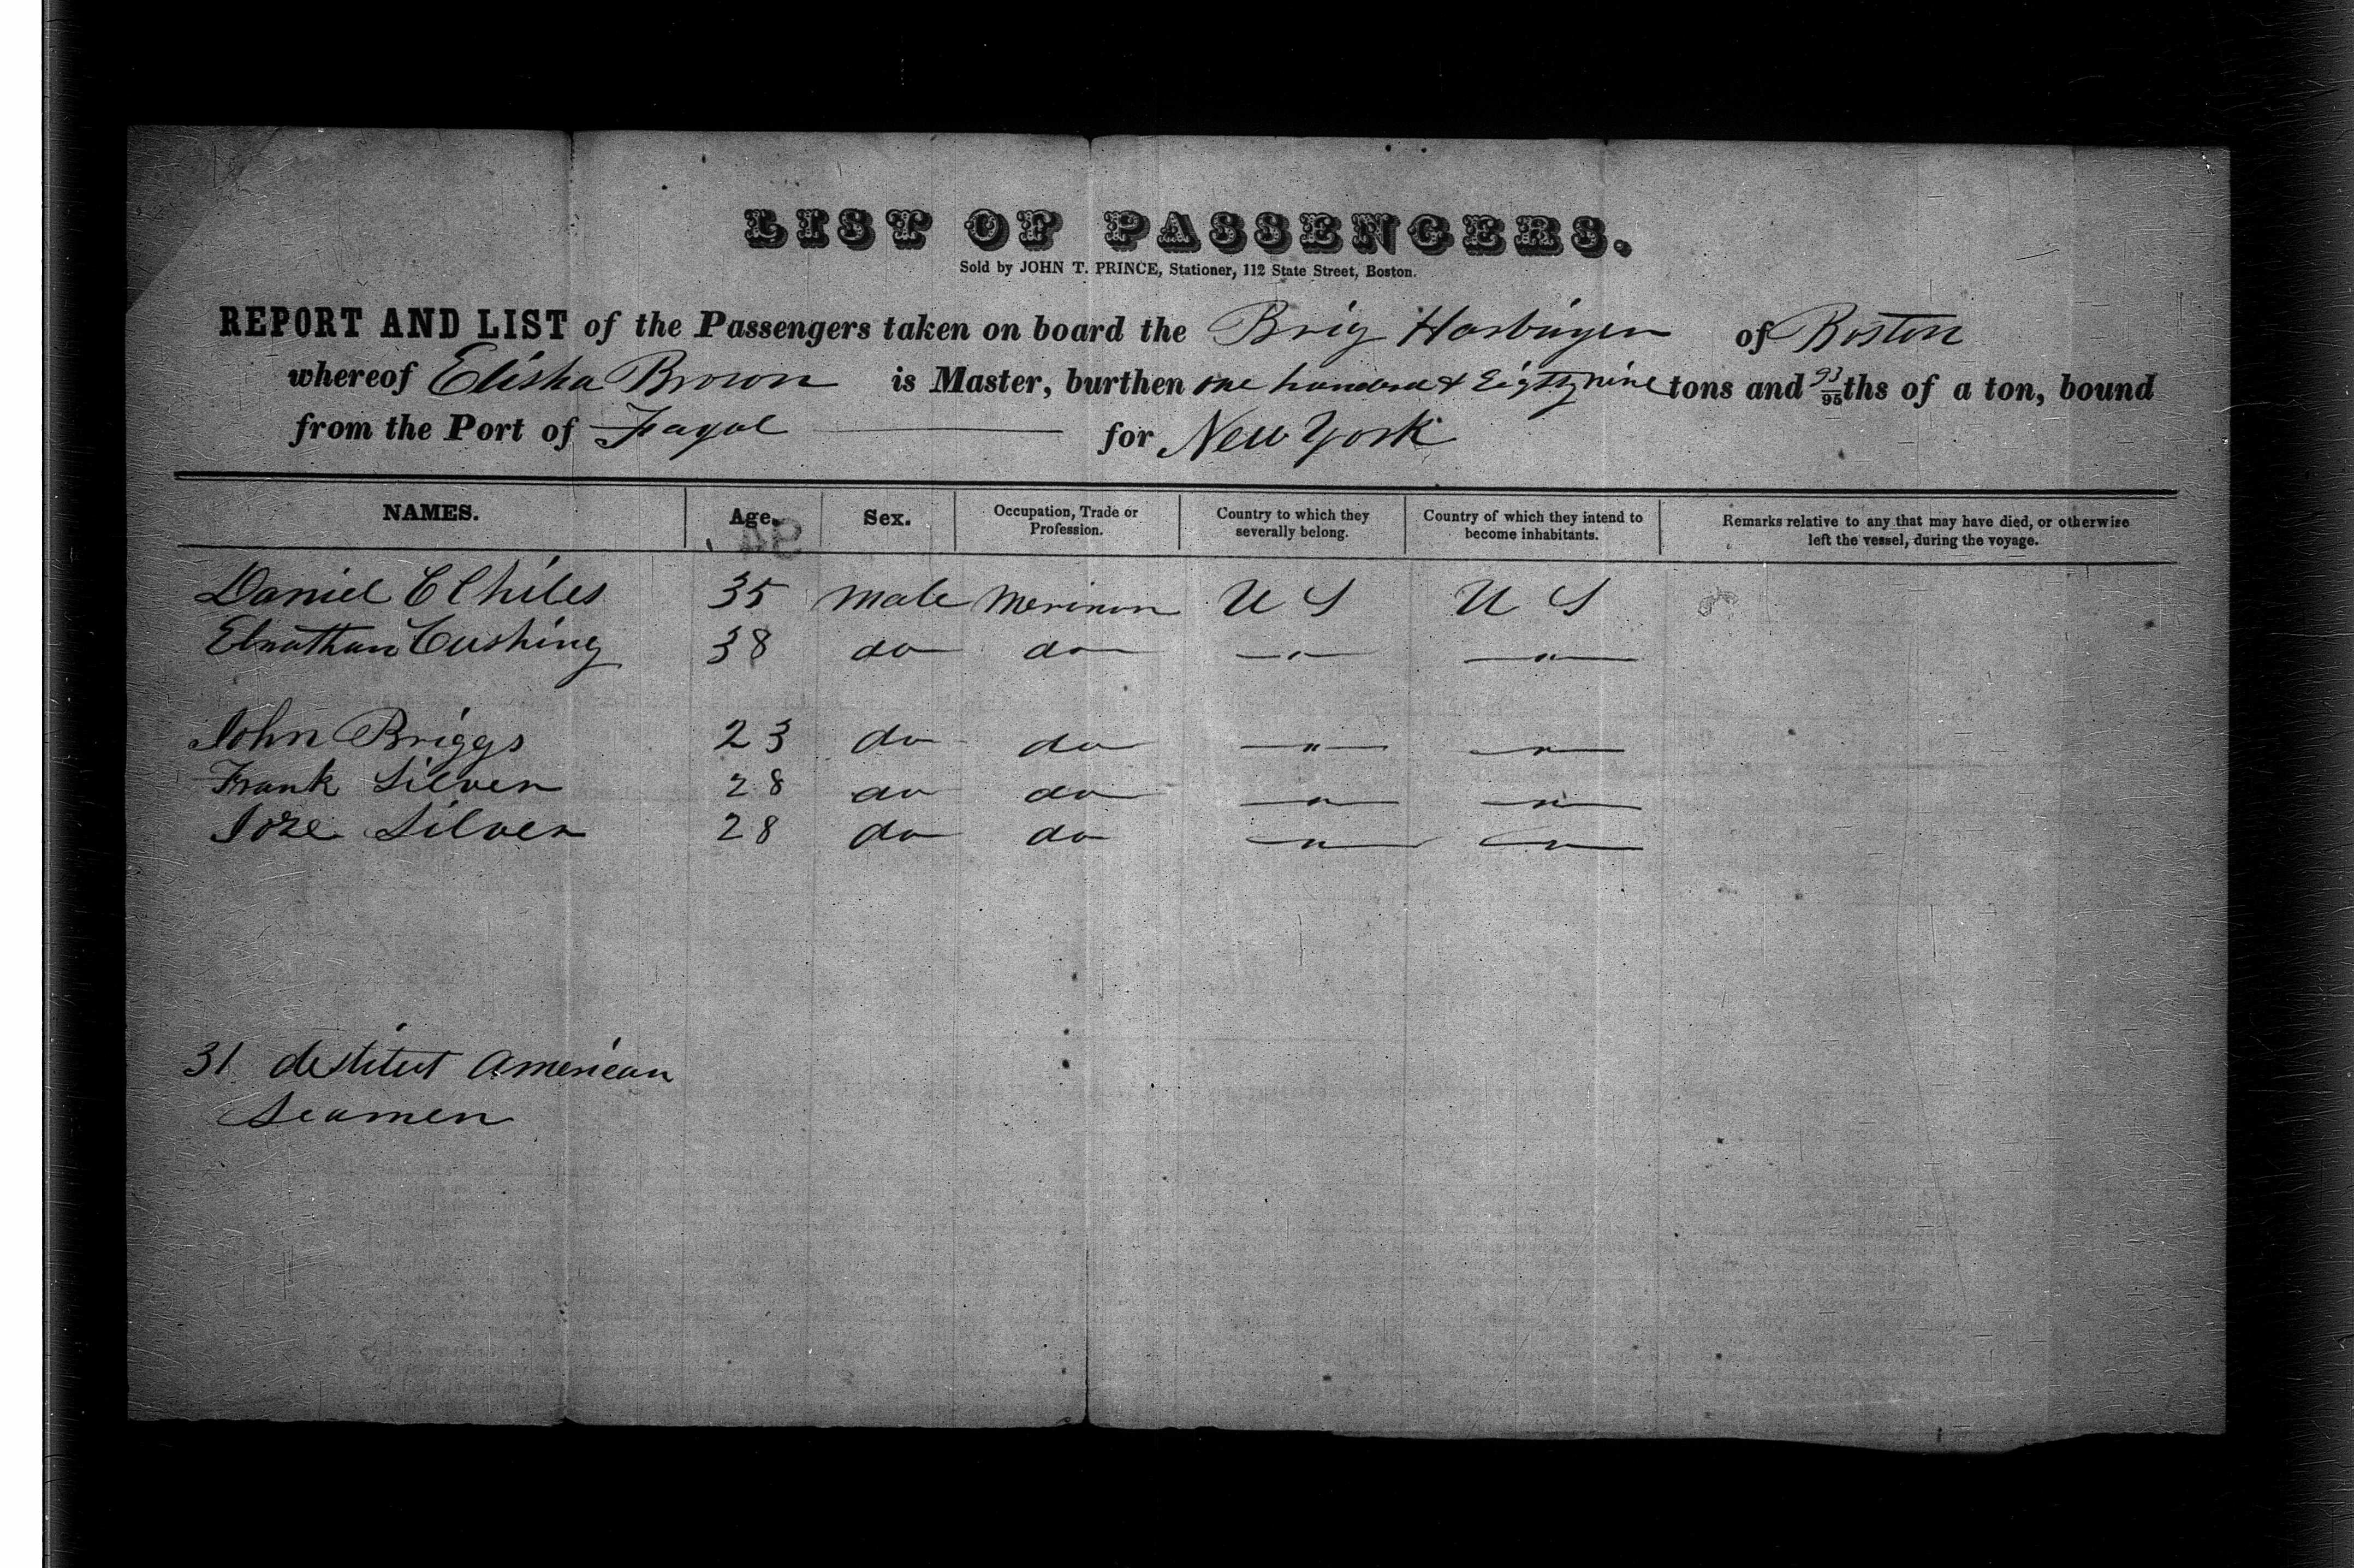 LIST OF PASSENGERS.
Sold by JOHN T. PRINCE, Stationer, 112 State Street, Boston.
REPORT AND LIST of the Passengers taken on board the Brig Harbinger of Boston
whereof Elisha Brown is Master, burthen one hundred & Eighty nine tons and 93/95ths of a ton, bound
from the Port of Fayal for New York
NAMES. Age. Sex. Occupation, Trade or Profession. Country to which they severally belong. Country of which they intend to become inhabitants. Remarks relative to any that may have died, or otherwise left the vessel, during the voyage.
Daniel C Chiles 35 male Merinon U S U S
Elnathan Cushing 38 do do " "
John Briggs 23 do do " "
Frank Silver 28 do do " "
Joze Silver 28 do do " "
31 destitut American
Seamen